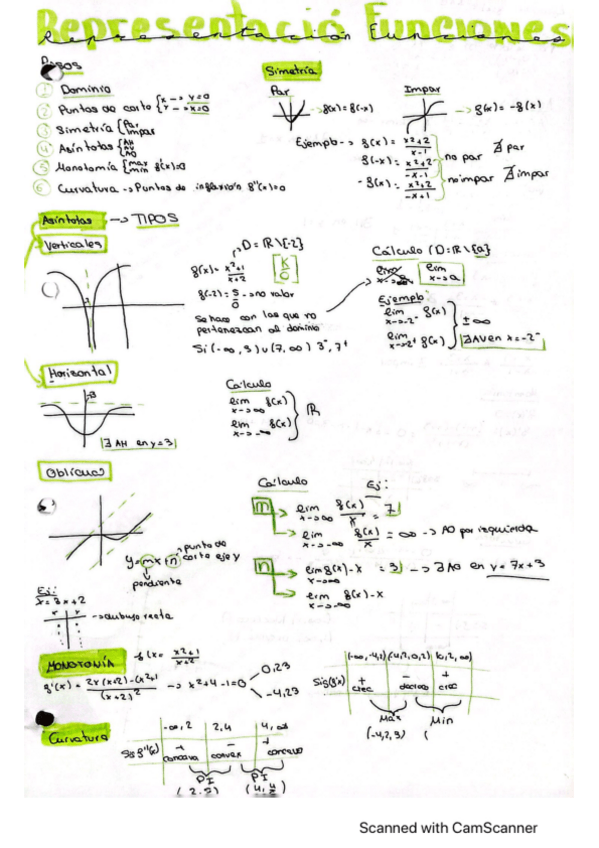 Representació Funciones
Representación Funciones
Pasos
1 Dominio
2 Puntos de corte { x --> y=0
y --> x=0
3 Simetría { Par
Impar
4 Asíntotas { AH
AV
AO
5 Monotomía { max
min f'(x)=0
6 Curvatura -> Puntos de inflexión f''(x)=0
Simetría
Par
-> f(x)=f(-x)
Impar
-> f(x) = -f(x)
Ejemplo --> f(x) = x²+2 / x-1
f(-x) = x²+2 / -x-1
no par ∄ par
-f(x) = x²+2 / -x+1
no impar ∄ impar
Asíntotas --> TIPOS
Verticales
D = ℝ \ {-2}
f(x) = x²+1 / x+2
K/0
f(-2) = 5/0 --> no valor
Se hace con los que no
pertenezcan al dominio
Si (-∞, 3) ∪ (7, ∞) 3⁻, 7⁺
Cálculo (D=ℝ\{a})
lim x->∞
lim x->a
Ejemplo
lim x->-2⁻ f(x)
lim x->-2⁺ f(x)
± ∞
∃AV en x=-2
Horizontal
3
∃ AH en y=3
Cálculo
lim x->∞ f(x)
lim x->-∞ f(x)
ℝ
Oblicua
y=mx+n
punto de
corte eje y
pendiente
Ej:
x = 3x+2
x y
--> dibujo recta
Cálculo
Ej:
m
lim x->∞ f(x)/x = 7
lim x->-∞ f(x)/x = ∞ --> AO por izquierda
n
lim x->∞ f(x)-x = 3 --> ∃ AO en y = 7x+3
lim x->-∞ f(x)-x
MONOTONÍA
f(x= x²+1 / x+2
f'(x) = 2x(x+2)-(x²+1 / (x+2)² --> x²+4-1=0
0,23
-4,23
(-∞,-4,1) (-4,2,0,2) (0,2,∞)
Sig f'(x)
+ crec
- decrec
+ crec
Max
(-4,2,9)
Min
(
Curvatura
-∞, 2
2,4
4, ∞
Sig f''(x)
+ concava
- convex
+ concavo
PI
(2,2)
PI
Scanned with CamScanner